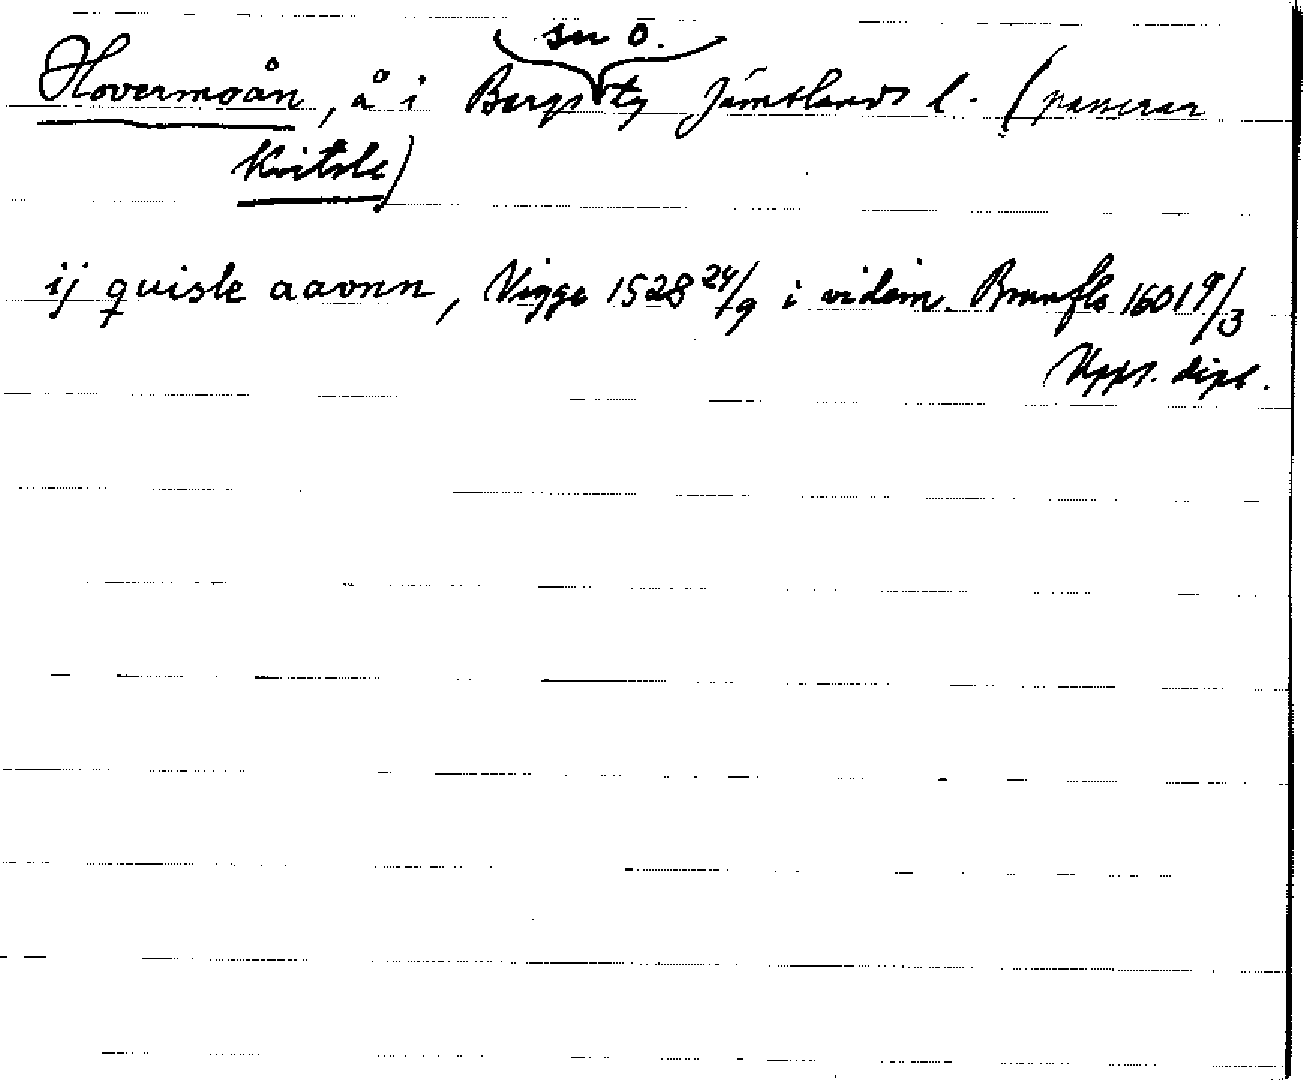 sn ö.
Hovermoån, å i Bergs tg Jämtlands l. (passerar
Kvitsle)
ij quisle aaonn, Vigge 1528 24/9 i vidim. Brunflo 1601 9/3
Upps. dipl.